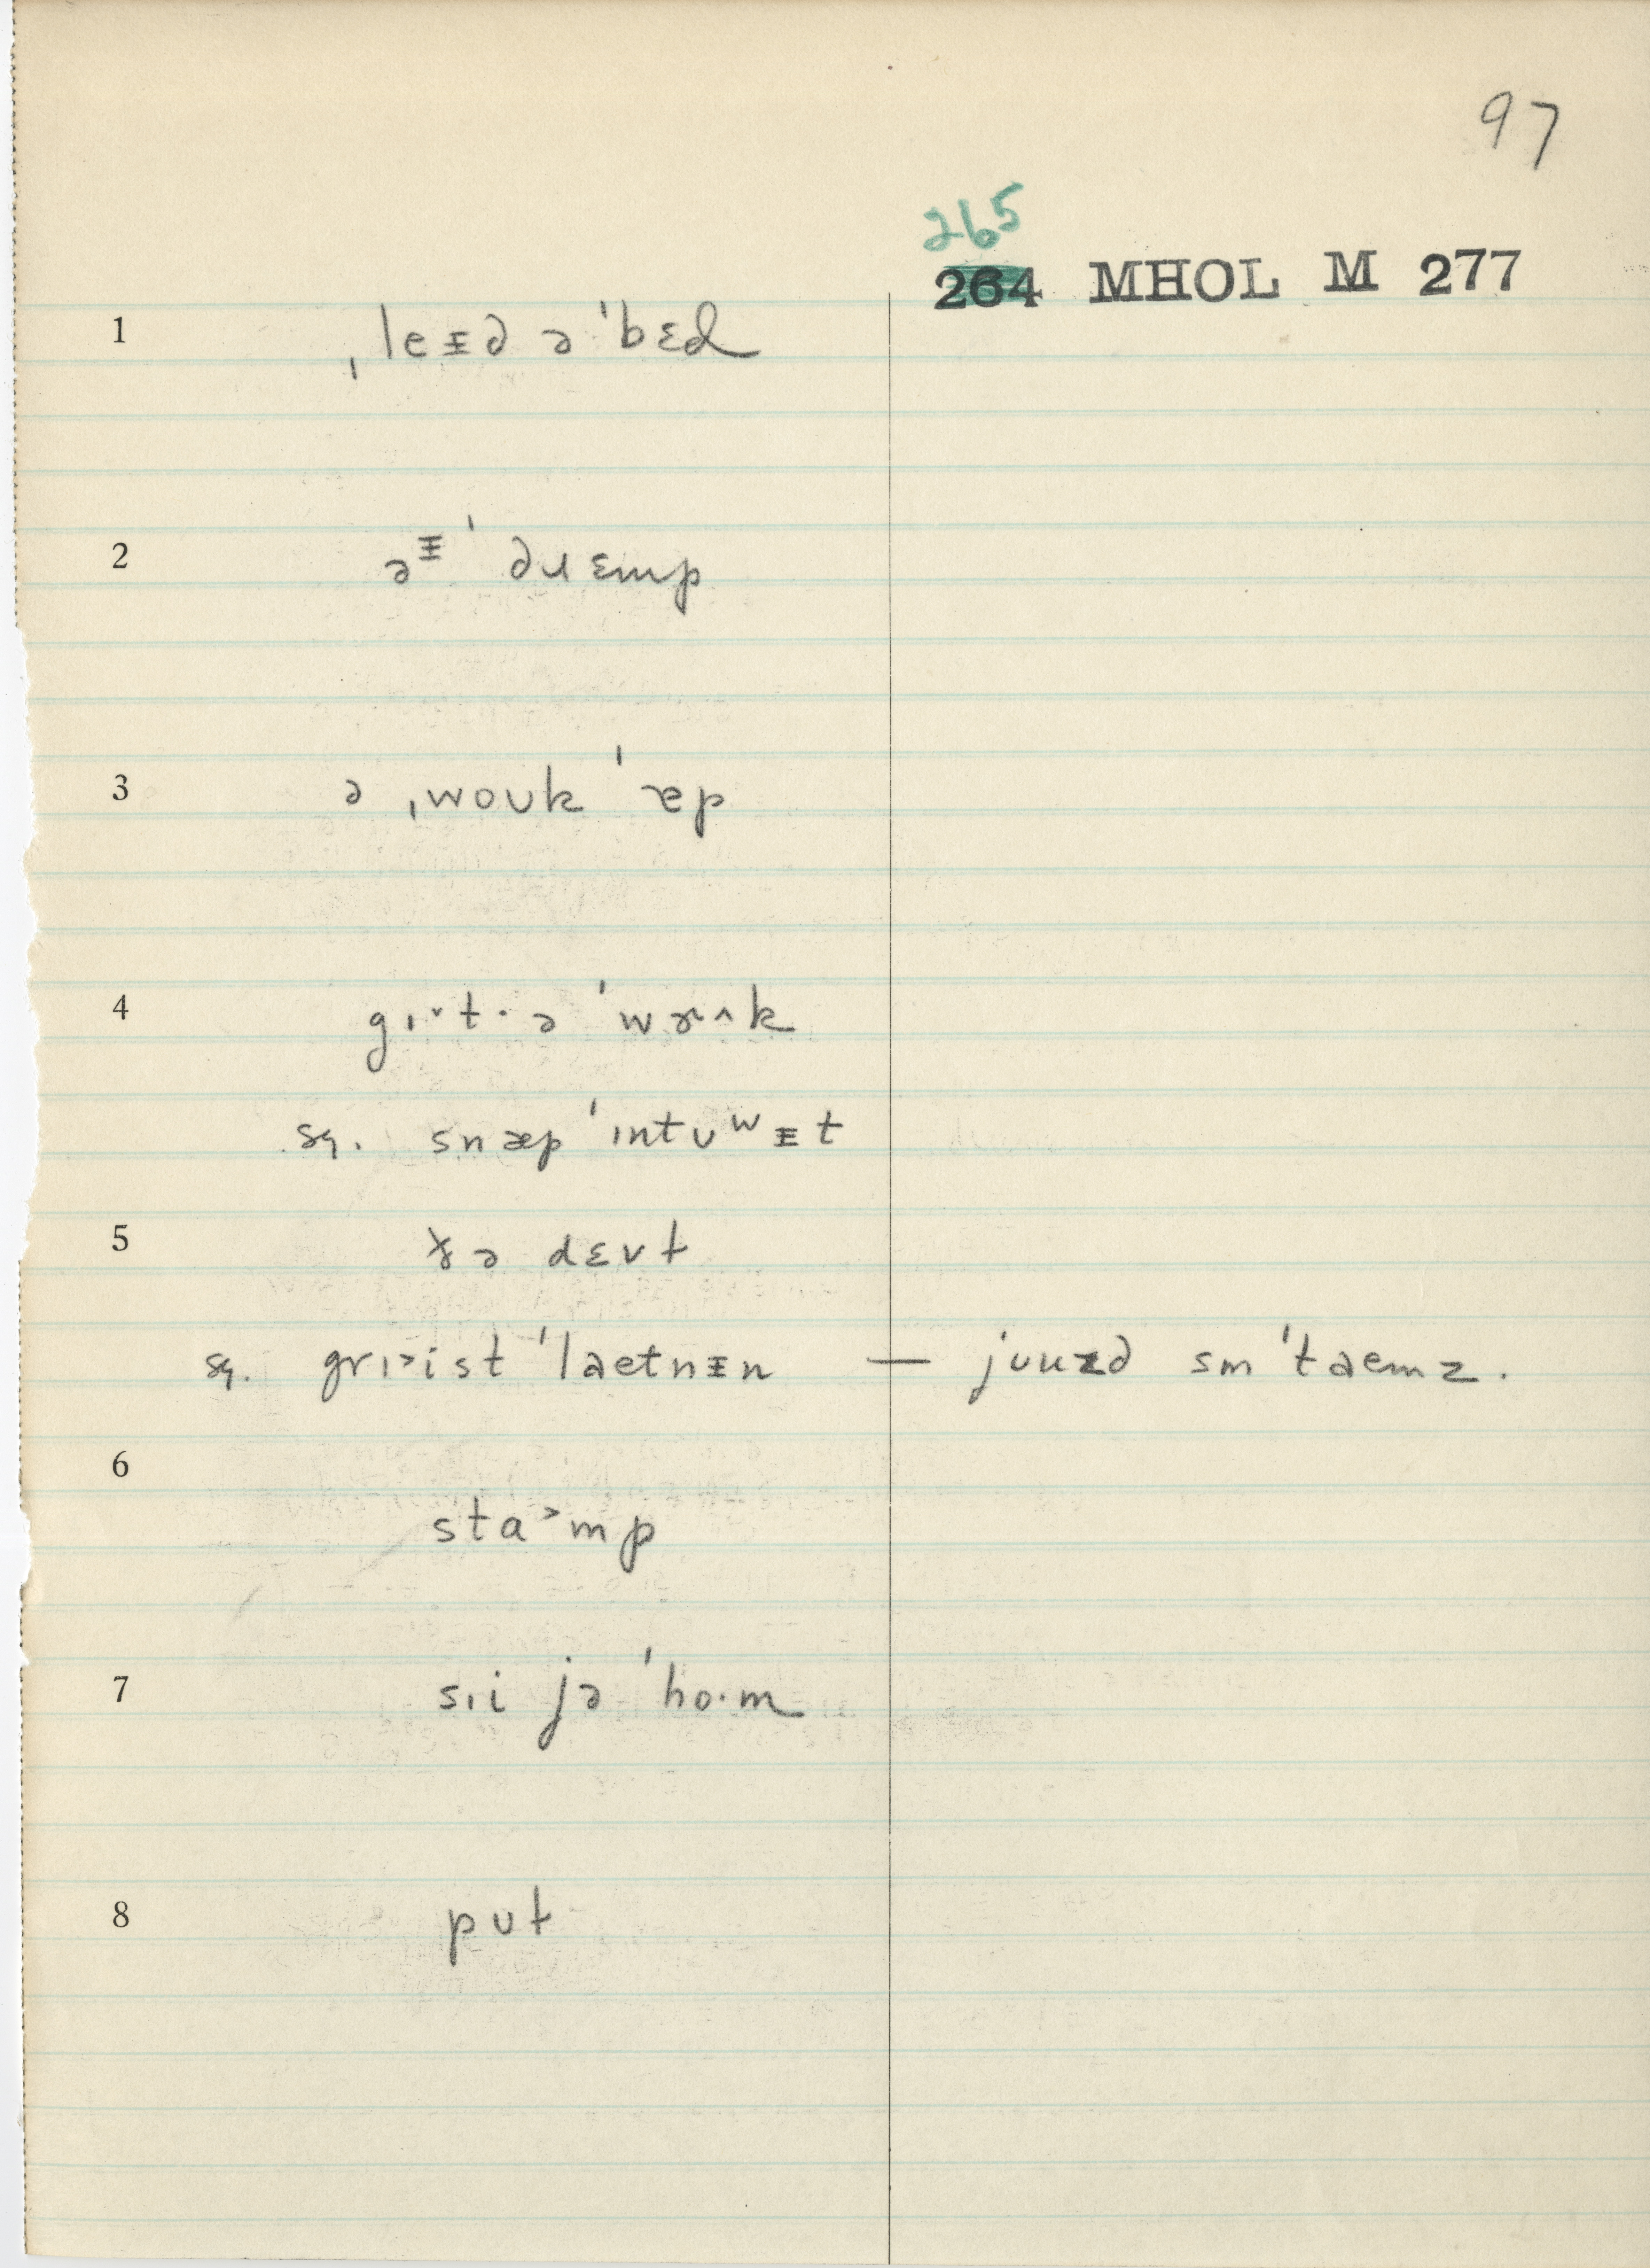 97
265
264 MHOL M 277
1 ˌleᵻd ə ˈbɛd
2 əᵻ ˈdɹɛmp
3 ə ˌwoʊk ˈɐp
4 gɪ˅t· ə ˈwɝ^k
sq. snæp ˈɪntʊʷᵻt
5 ðə dɛvt
sq. grɪ˃ist ˈlaetnᵻn — jʊuzd sm ˈtaemz.
6
sta˃mp
7 sɪi jə ˈho·m
8 pʊt